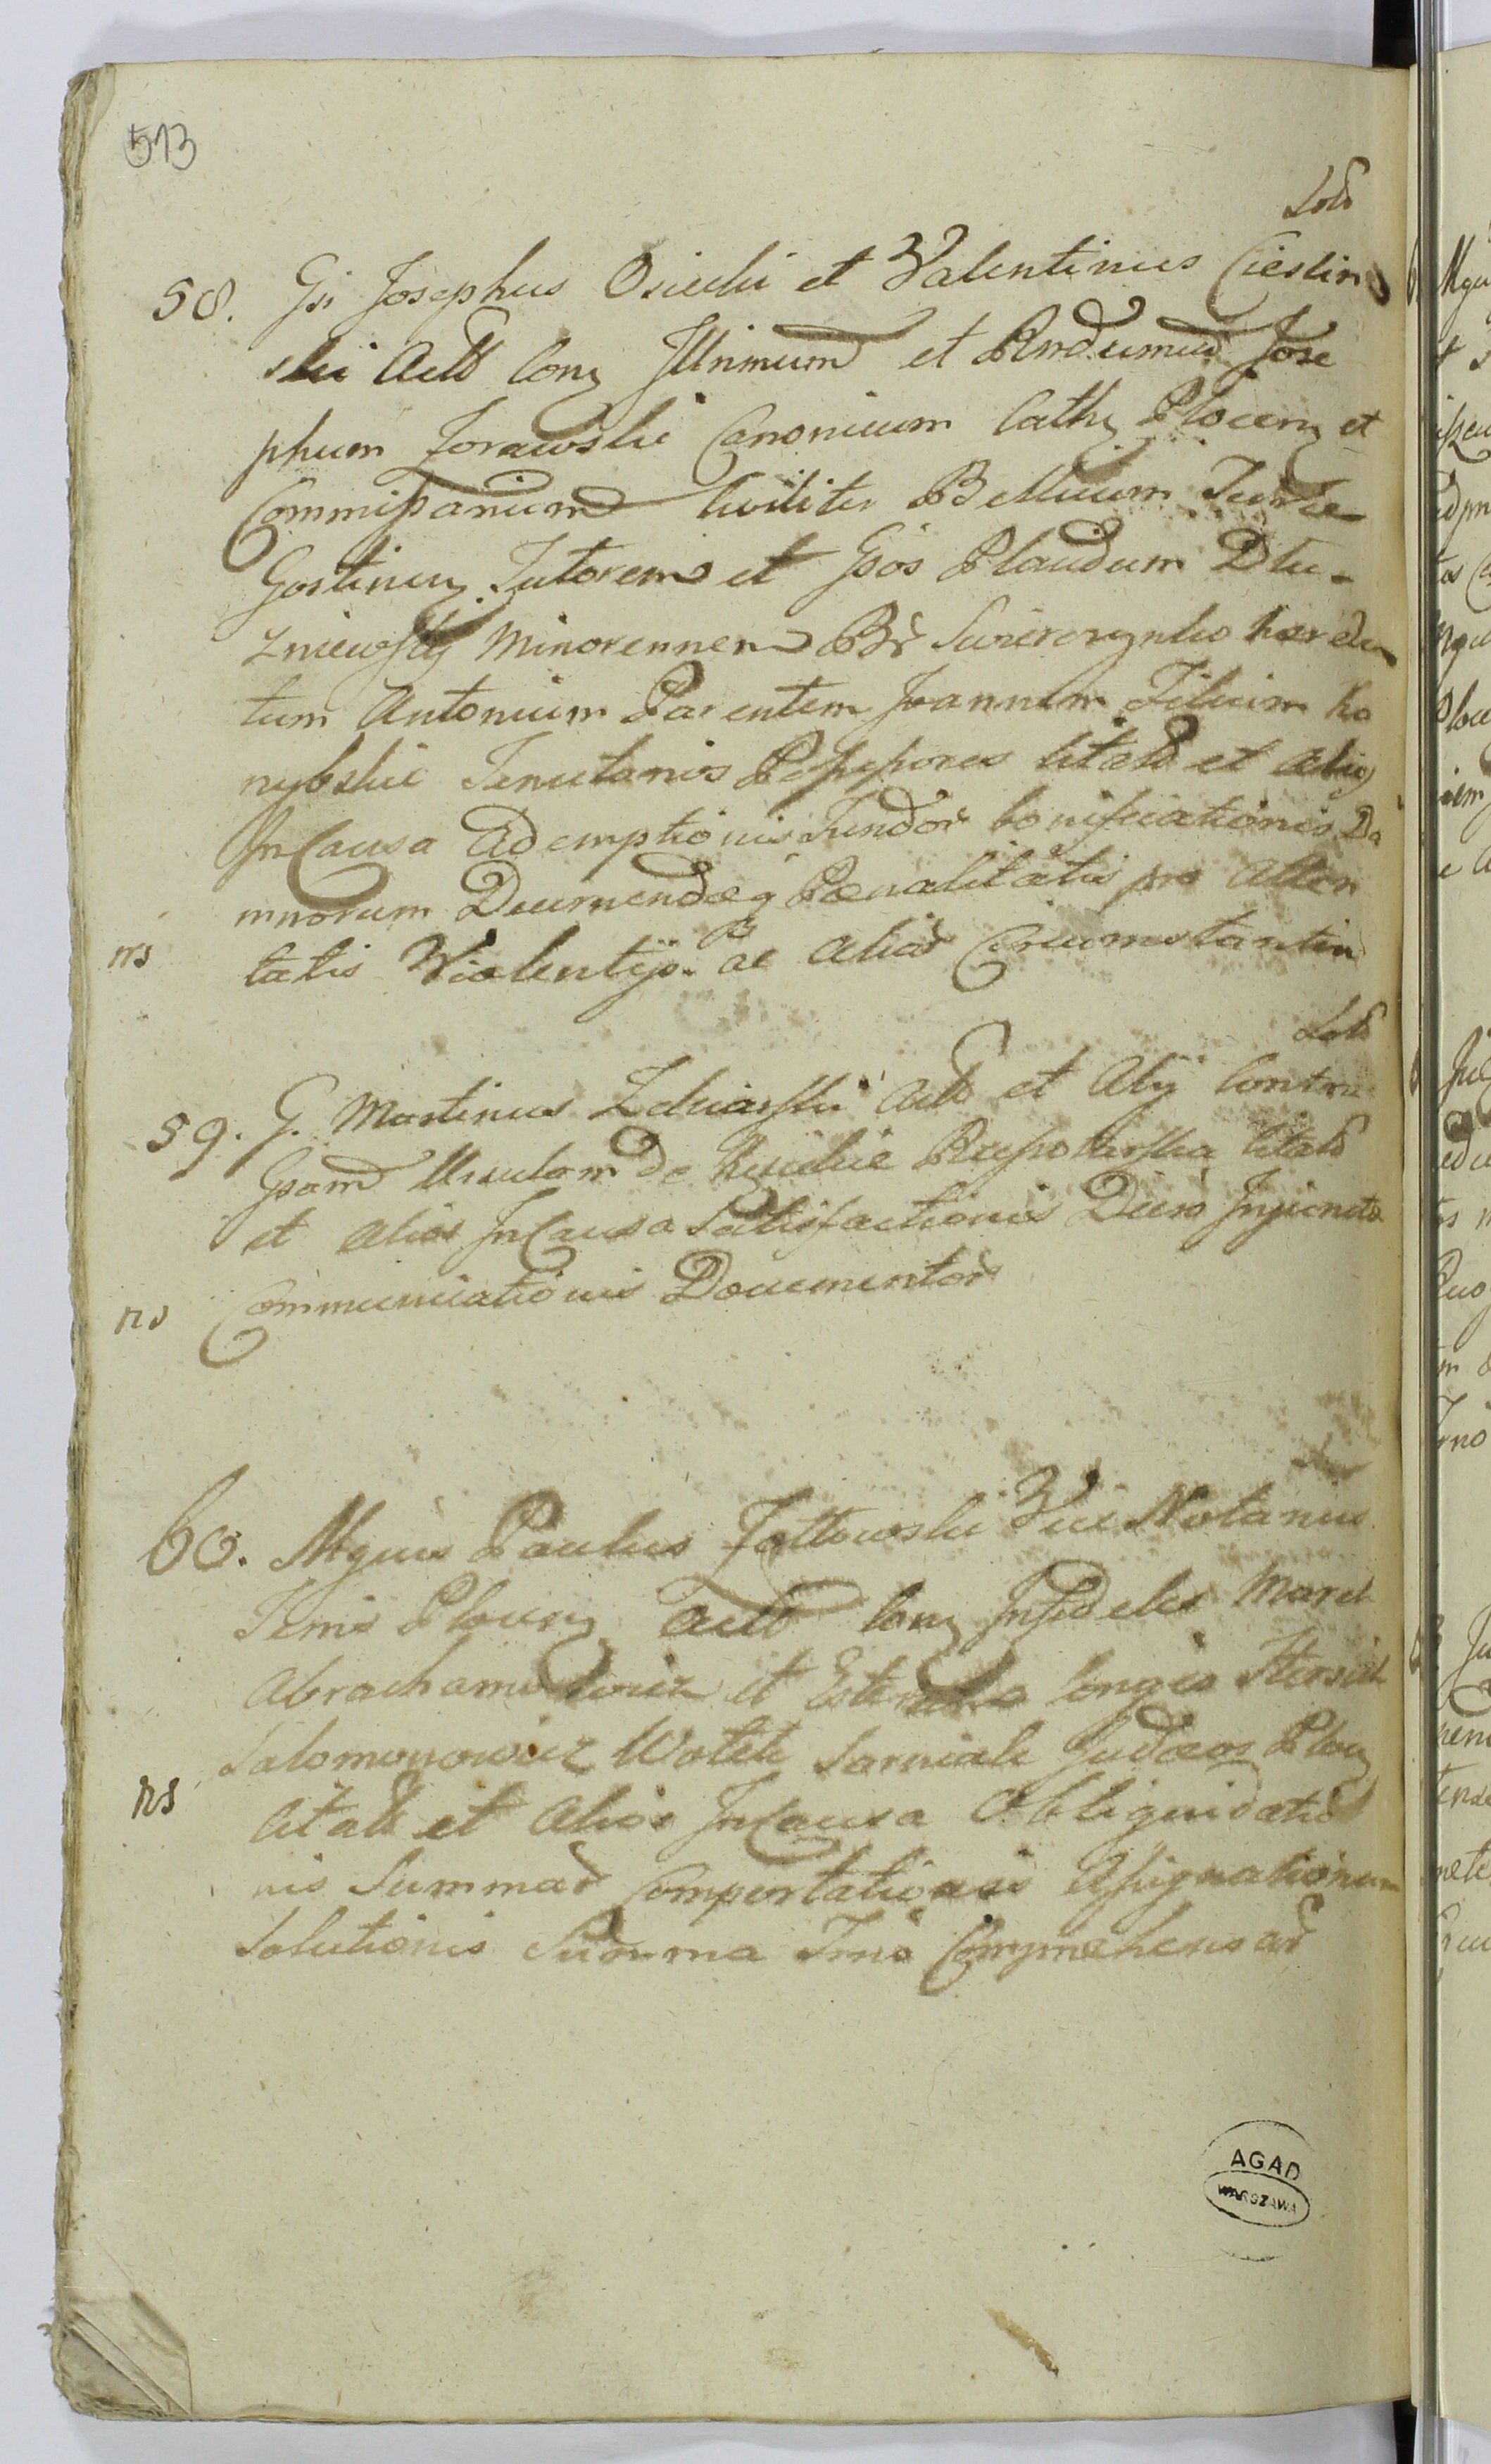 513
Solt
58. Gsi Josephus Osiecki et Valentinus Cieslin
ski Actt Cong Illrimum et Rndumum Jose
phum Zorawski Canonicum Cathg Ploceng et
Commissarium Civiliter Bellicum Terrae
Gostineng Tutorem et Gsos Placidum Dłu-
zniewski Minorennem Br haeredi
tum Antonium Parentem Joannem Filium Ko
nybskie Tenutarios Possessores Citatt et Alios
In Causa Ademptionis Fundor bonificationis Da
mnorum Decernendaeq Paenalitatis pro Atten
ns tatis Violentys ac Aliar Circumstantiar
Solt
59. G. Martinus Actt et Aly Contra
Gsam Ursulam de Citatt
et Alios In Causa Satisfactionis Decso Injuncta
ns Communicationis Documentor
60. Mgnus Paulus Zołtowski Vice Notarius
Trris Ploceng Actt Cong Infideles Marek
Abrachamowicz et Conges Hersich
Salomonowicz Wolek Judaeos Ploceng
ns Citatt et Alios In Causa Obliquidatio
nis Summar Comportationis Assignationum
Solutionis Summa Trris Comprehensar
AGAD
WARSZAWA